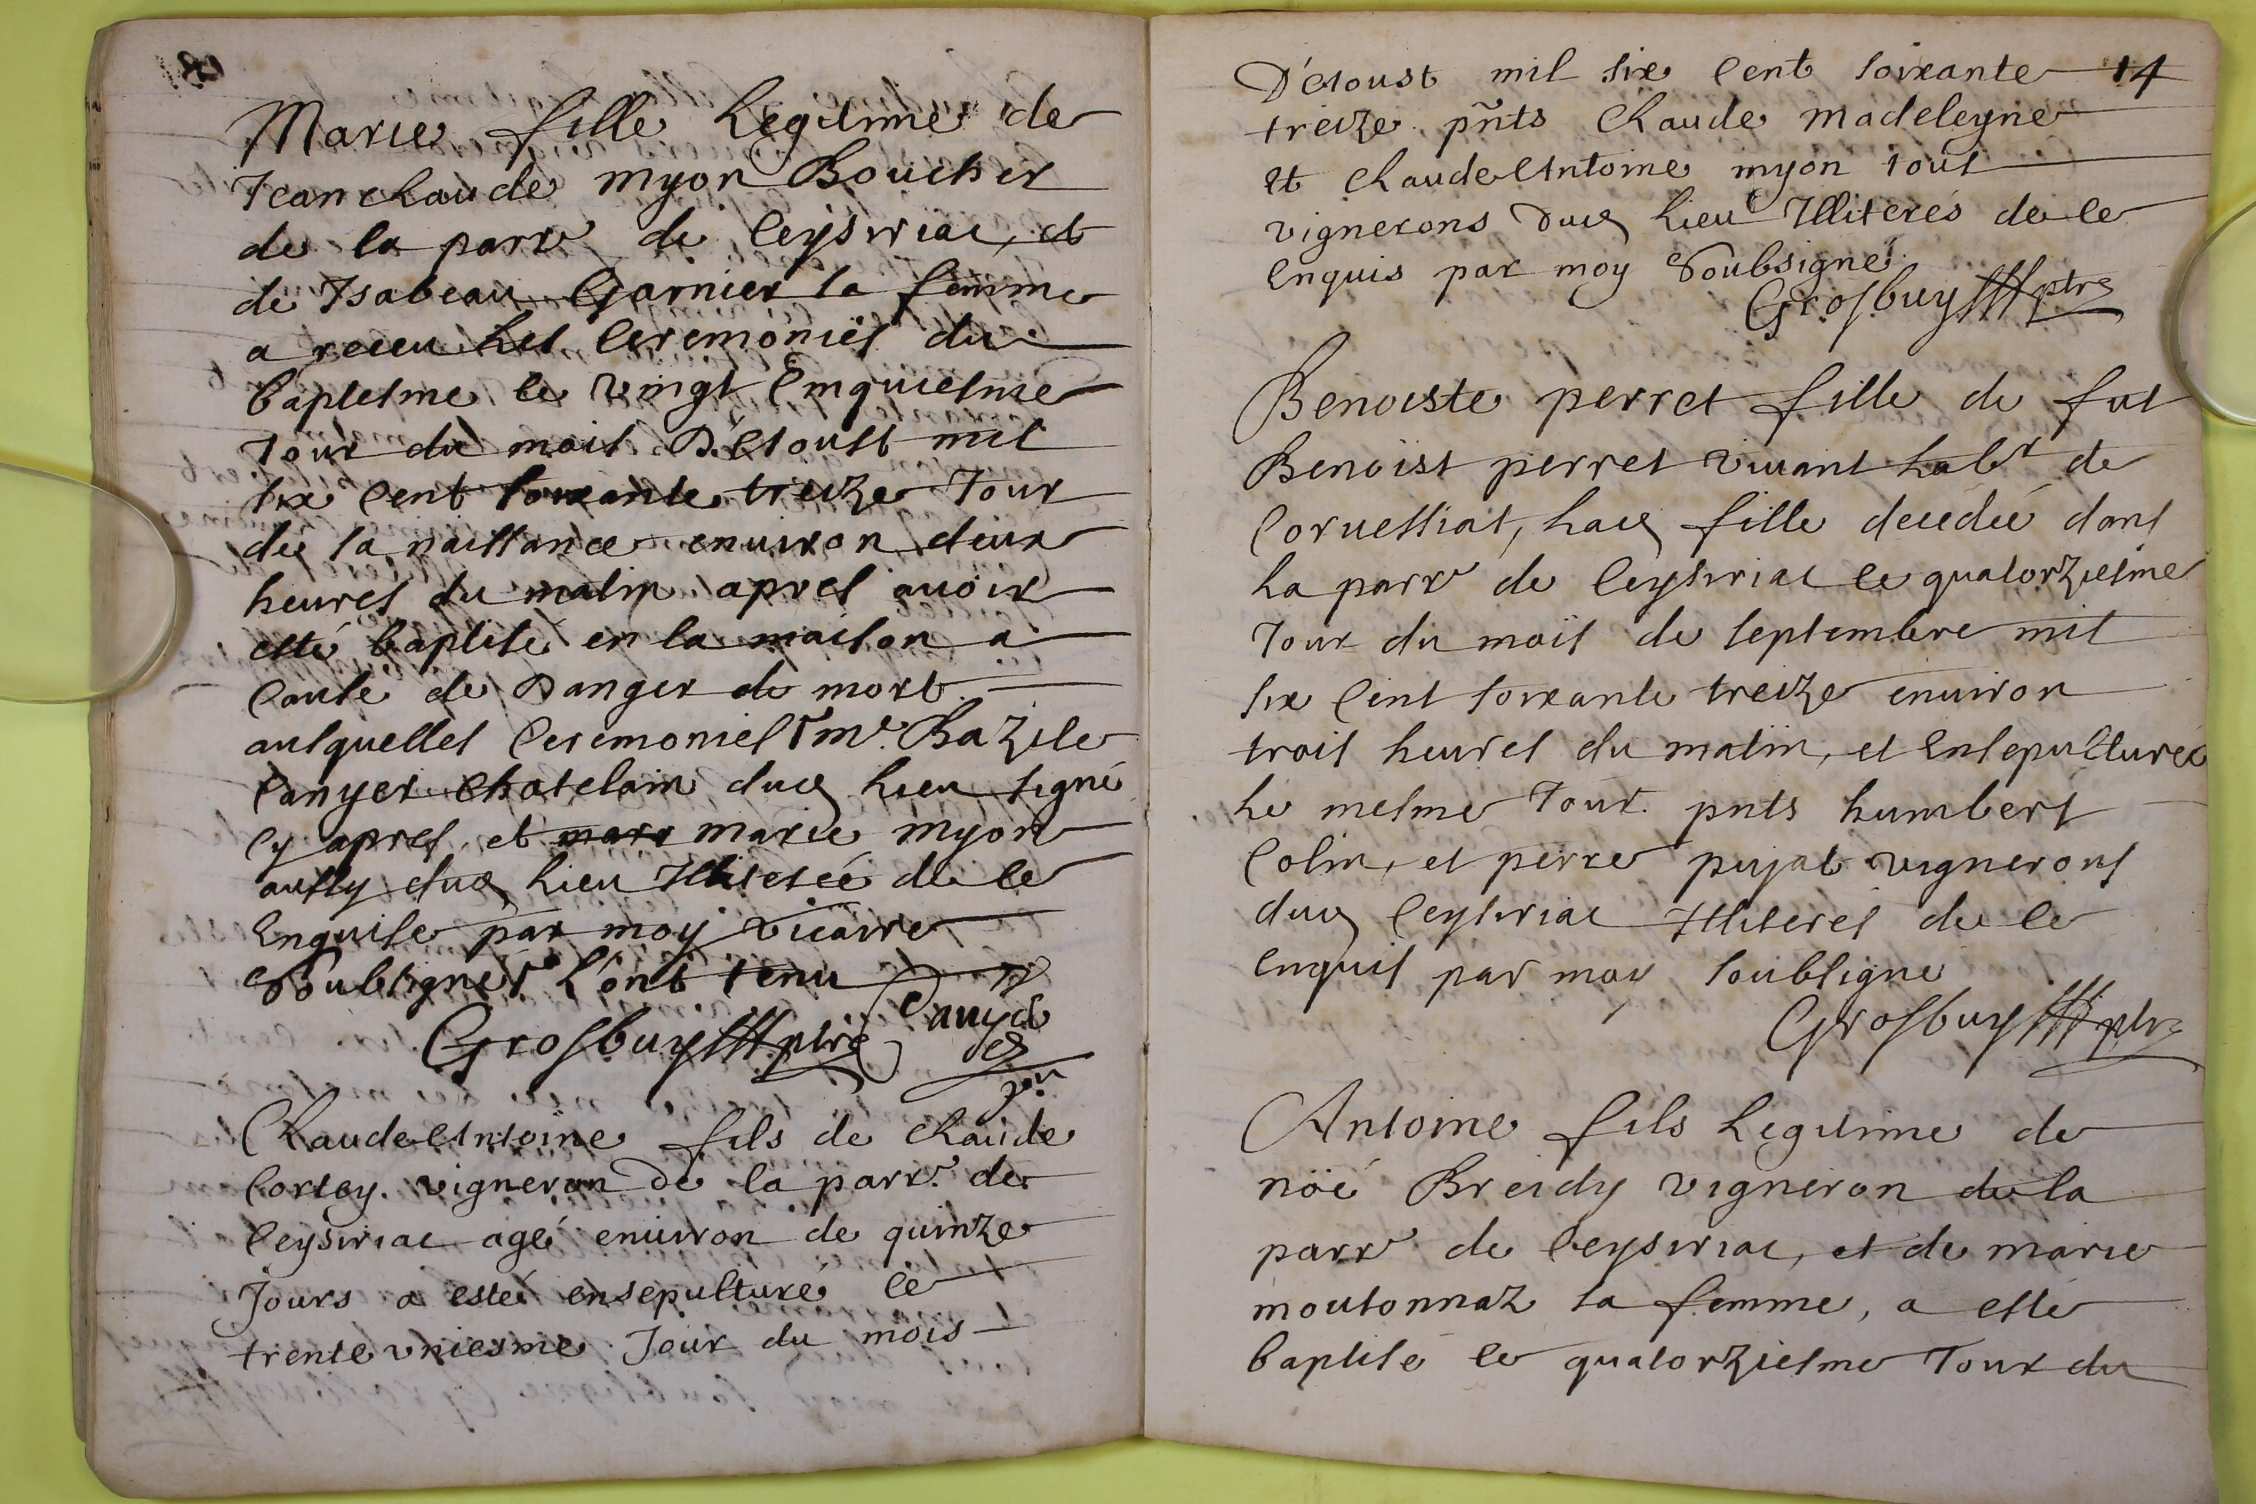 Marie fille legitime de
Jean claude myon Boucher
de la parr.e de ceyseriac, et
de Isabeau Garnier sa femme
a receu les ceremonies du
baptesme le vingt cinquiesme
Jour du mois D'Aoust mil
six cent soixante treize Jour
de sa naissance enuiron deux
heures du matin apres auoir
esté baptisé en la maison a
cause de Danger de mort.
ausquelles ceremonies m.e Bazile
Canyer Chatelain dud lieu signé
cy apres, et marr marie myon
aussy dud lieu Illiterée de ce
Enquise par moy vicaire
Soubsignés l'ont tenu
Grosbuy ptre Canyer
Claude Antoine fils de claude
Cortey. vigneron de la parr.e de
Ceyseriac agé enuiron de quinze
Jours a esté ensepulturé le
trente vniesme Jour du mois
14
D'Aoust mil six cent soixante
treize. pñts Claude madeleyne
et Claude Antoine myon tous
vignerons dud lieu Illiterés de ce
Enquis par moy Soubsigné
Grosbuy ptre
Benoiste perret fille de fut
Benoist perret viuant hab.t de
Coruessiat, lad fille decedée dans
la parr.e de Ceyseriac le quatorziesme
Jour du mois de septembre mil
six cent soixante treize enuiron
trois heures du matin, et Ensepulturée
le mesme Jour. pnts humbert
Colin, et pierre pujat vignerons
dud Ceyseriac Illiterés de ce
enquis par moy soubsigne
Grosbuy ptre
Antoine fils legitime de
nöé Breidy vigneron de la
parr.e de Ceyseriac, et de marie
moutonnaz sa femme, a esté
baptisé le quatorziesme Jour du